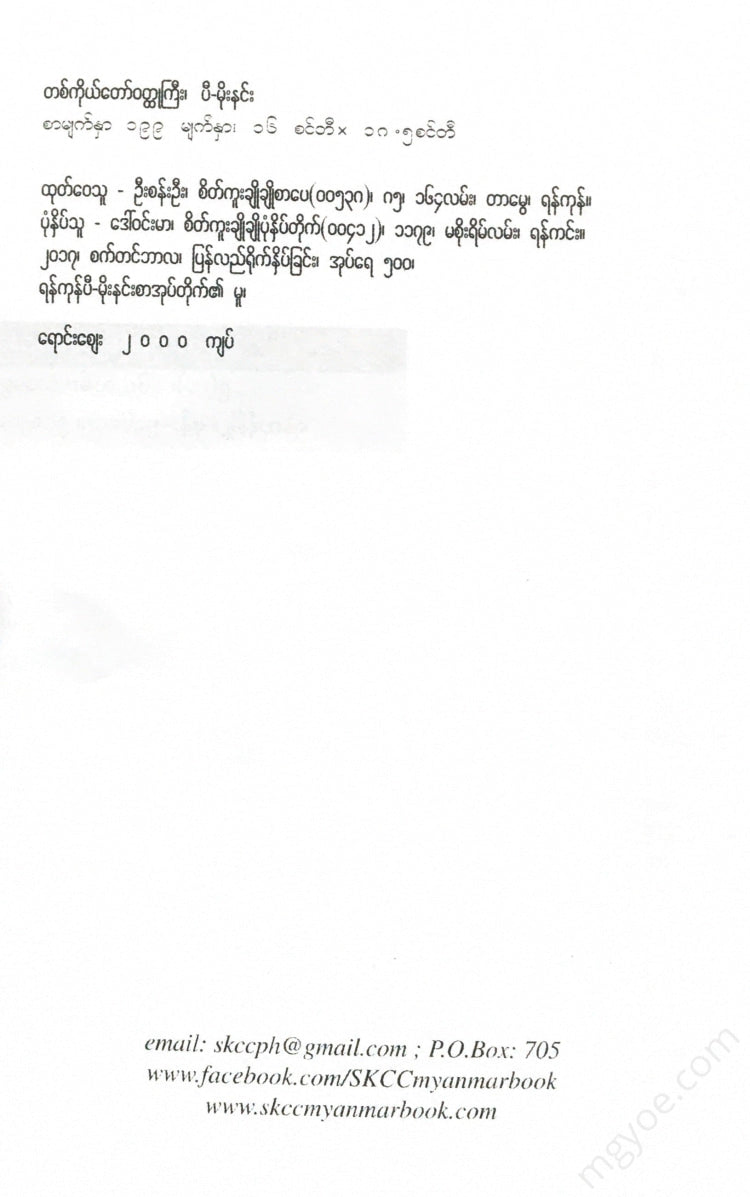 တစ်ကိုယ်တော်ဝတ္ထုကြီး၊ ပီ-မိုးနင်း
စာမျက်နှာ ၁၉၉ မျက်နှား ၁၆ စင်တီ × ၁ဂ.၅စင်တီ
ထုတ်ဝေသူ - ဦးစန်းဦး၊ စိတ်ကူးချိုချိုစာပေ(၀၀၅၃ဂ)၊ ဂ၅၊ ၁၆၄လမ်း၊ တာမွေ၊ ရန်ကုန်။
ပုံနှိပ်သူ - ဒေါ်ဝင်းမာ၊ စိတ်ကူးချိုချိုပုံနှိပ်တိုက်(၀၀၄၁၂)၊ ၁၁၇၉၊ မစိုးရိမ်လမ်း၊ ရန်ကင်း။
၂၀၁၇၊ စက်တင်ဘာလ၊ ပြန်လည်ရိုက်နှိပ်ခြင်း၊ အုပ်ရေ ၅၀၀၊
ရန်ကုန်ပီ-မိုးနင်းစာအုပ်တိုက်၏ မူ၊
ရောင်းဈေး ၂ ၀ ၀ ၀ ကျပ်
email: skccph@gmail.com ; P.O.Box: 705
www.facebook.com/SKCCmyanmarbook
www.skccmyanmarbook.com
mgyoe.com